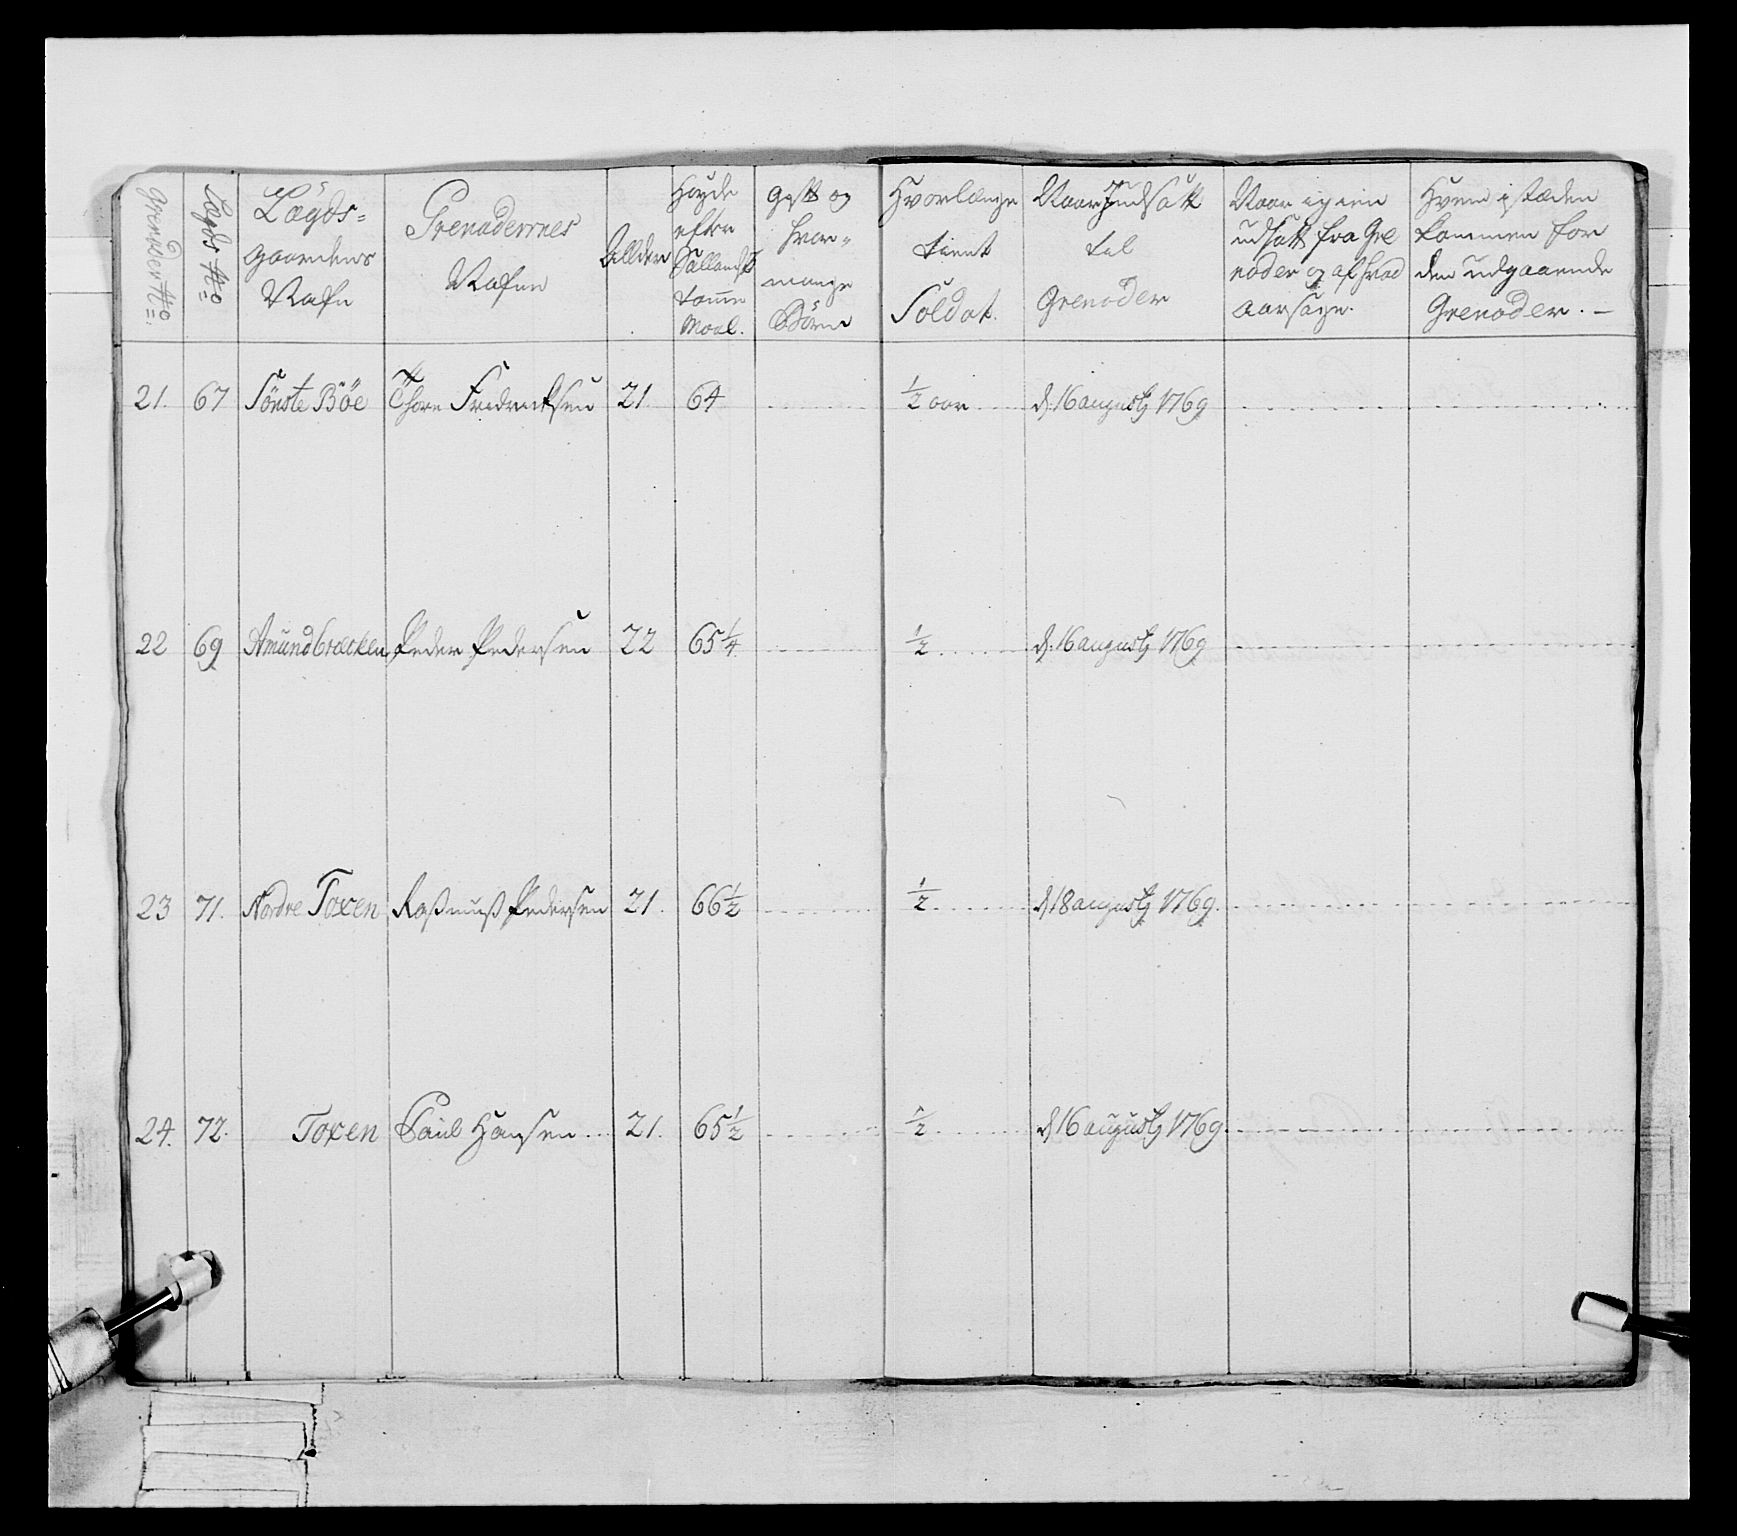 Grenoder No
Lægds No
Lægds-
gaardens
Nafn
Grenoderrnes
Nafne
Allder
Høyde
efter
Sællandsk
tomme
Maal.
Gift og
hvor-
mange
Börn
Hvorlænge
tient
Soldat.
Naar Indsatt
til
Grenoder
Naar igien
udsatt fra Gre
noder og af hvad
aarsage.
Hvem i stæden
kommen for
den udgaaende
Grenoder. —
21. 67 Sönste Böe Thore Fredricksen 21. 64 1/2 aar d. 16 augusty 1769
22 69 Amundbræcken Peder Pedersen 22 65 1/4 1/2 d. 16 augusty 1769
23 71. Nordre Toxen Rasmus Pedersen 21. 66 1/2 1/2 d. 18 augusty 1769.
24. 72. Toxen Paul Hansen 21. 65 1/2 1/2 d. 16 augusty 1769.